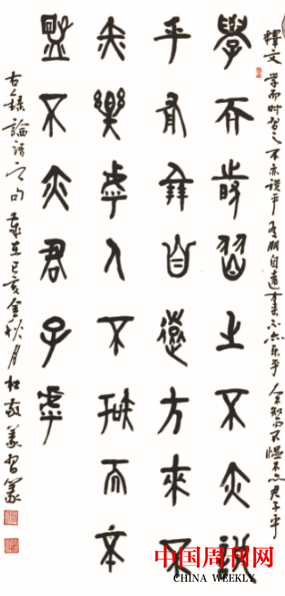 釋文 學而時習之不亦說乎有朋自遠方來不亦乐乎人不知而不慍不亦君子乎
學而時習之不亦說
乎有朋自遠方來不
亦樂乎人不知而不
慍不亦君子乎
論語句 歲在己亥金秋月杜
中国周刊网
CHINA WEEKLY